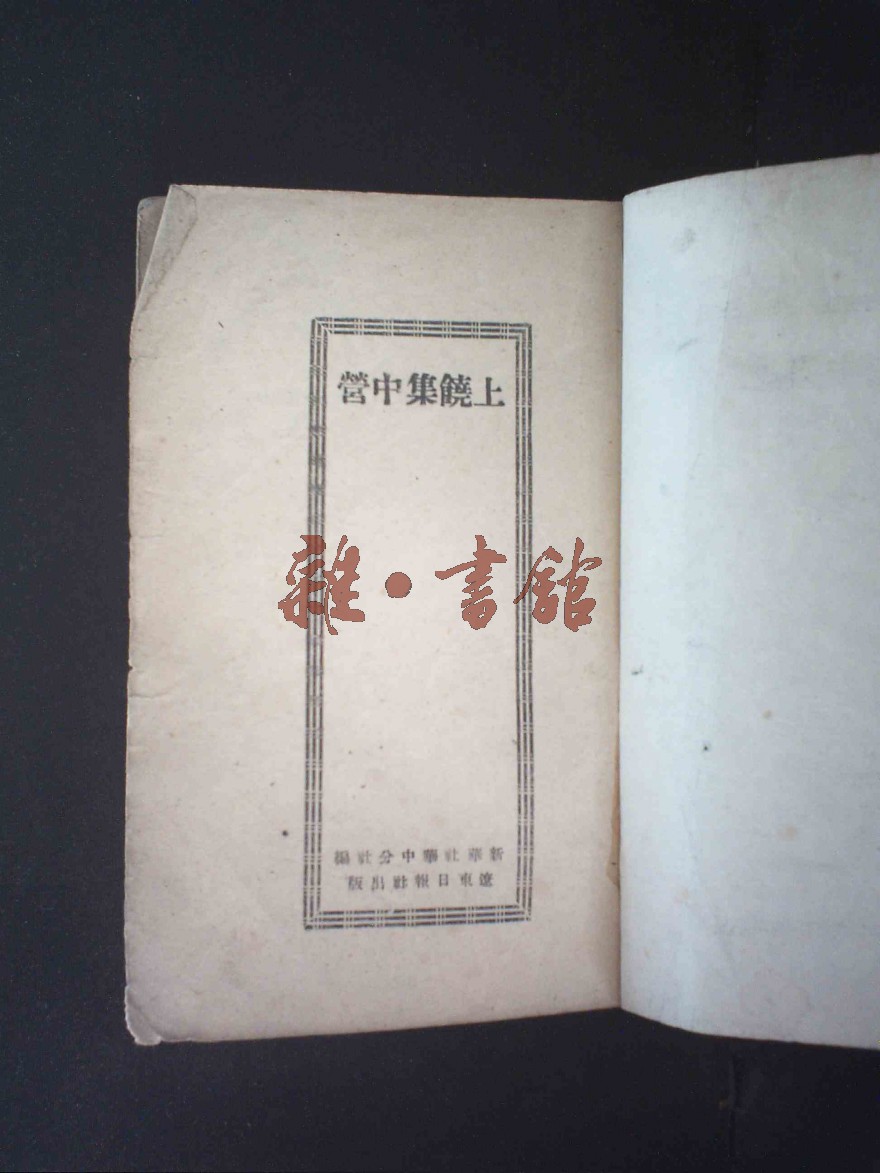 上饒集中營
雜·書館
新華社華中分社編
遼東日報社出版